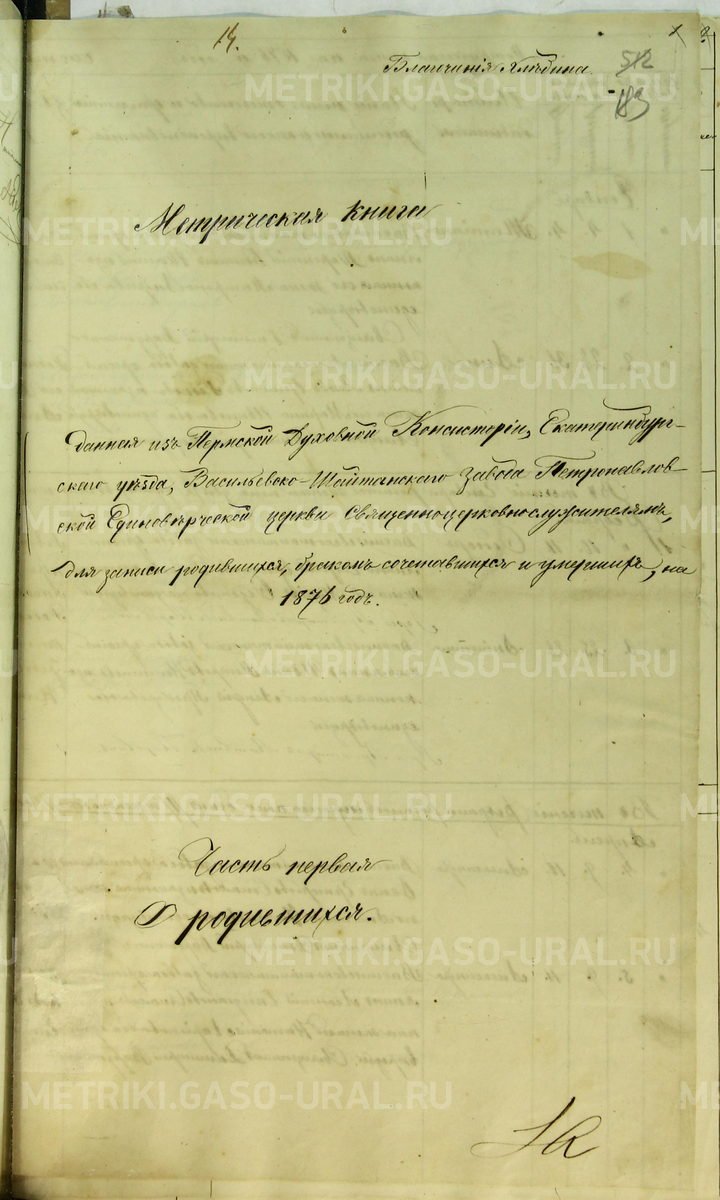 14.
Благчинія Хлѣбина.
512
183
Метрическая книга
данная изъ Пермской Духовной Консисторіи, Екатеринбург-
скаго уѣзда, Васильевско-Шайтанскаго завода Петропавлов-
ской Единовѣрческой церкви священноцерковнослужителямъ,
для записи родившихся, бракомъ сочетавшихся и умершихъ, на
1876 годъ.
Часть первая
О родившихся.
METRIKI.GASO-URAL.RU